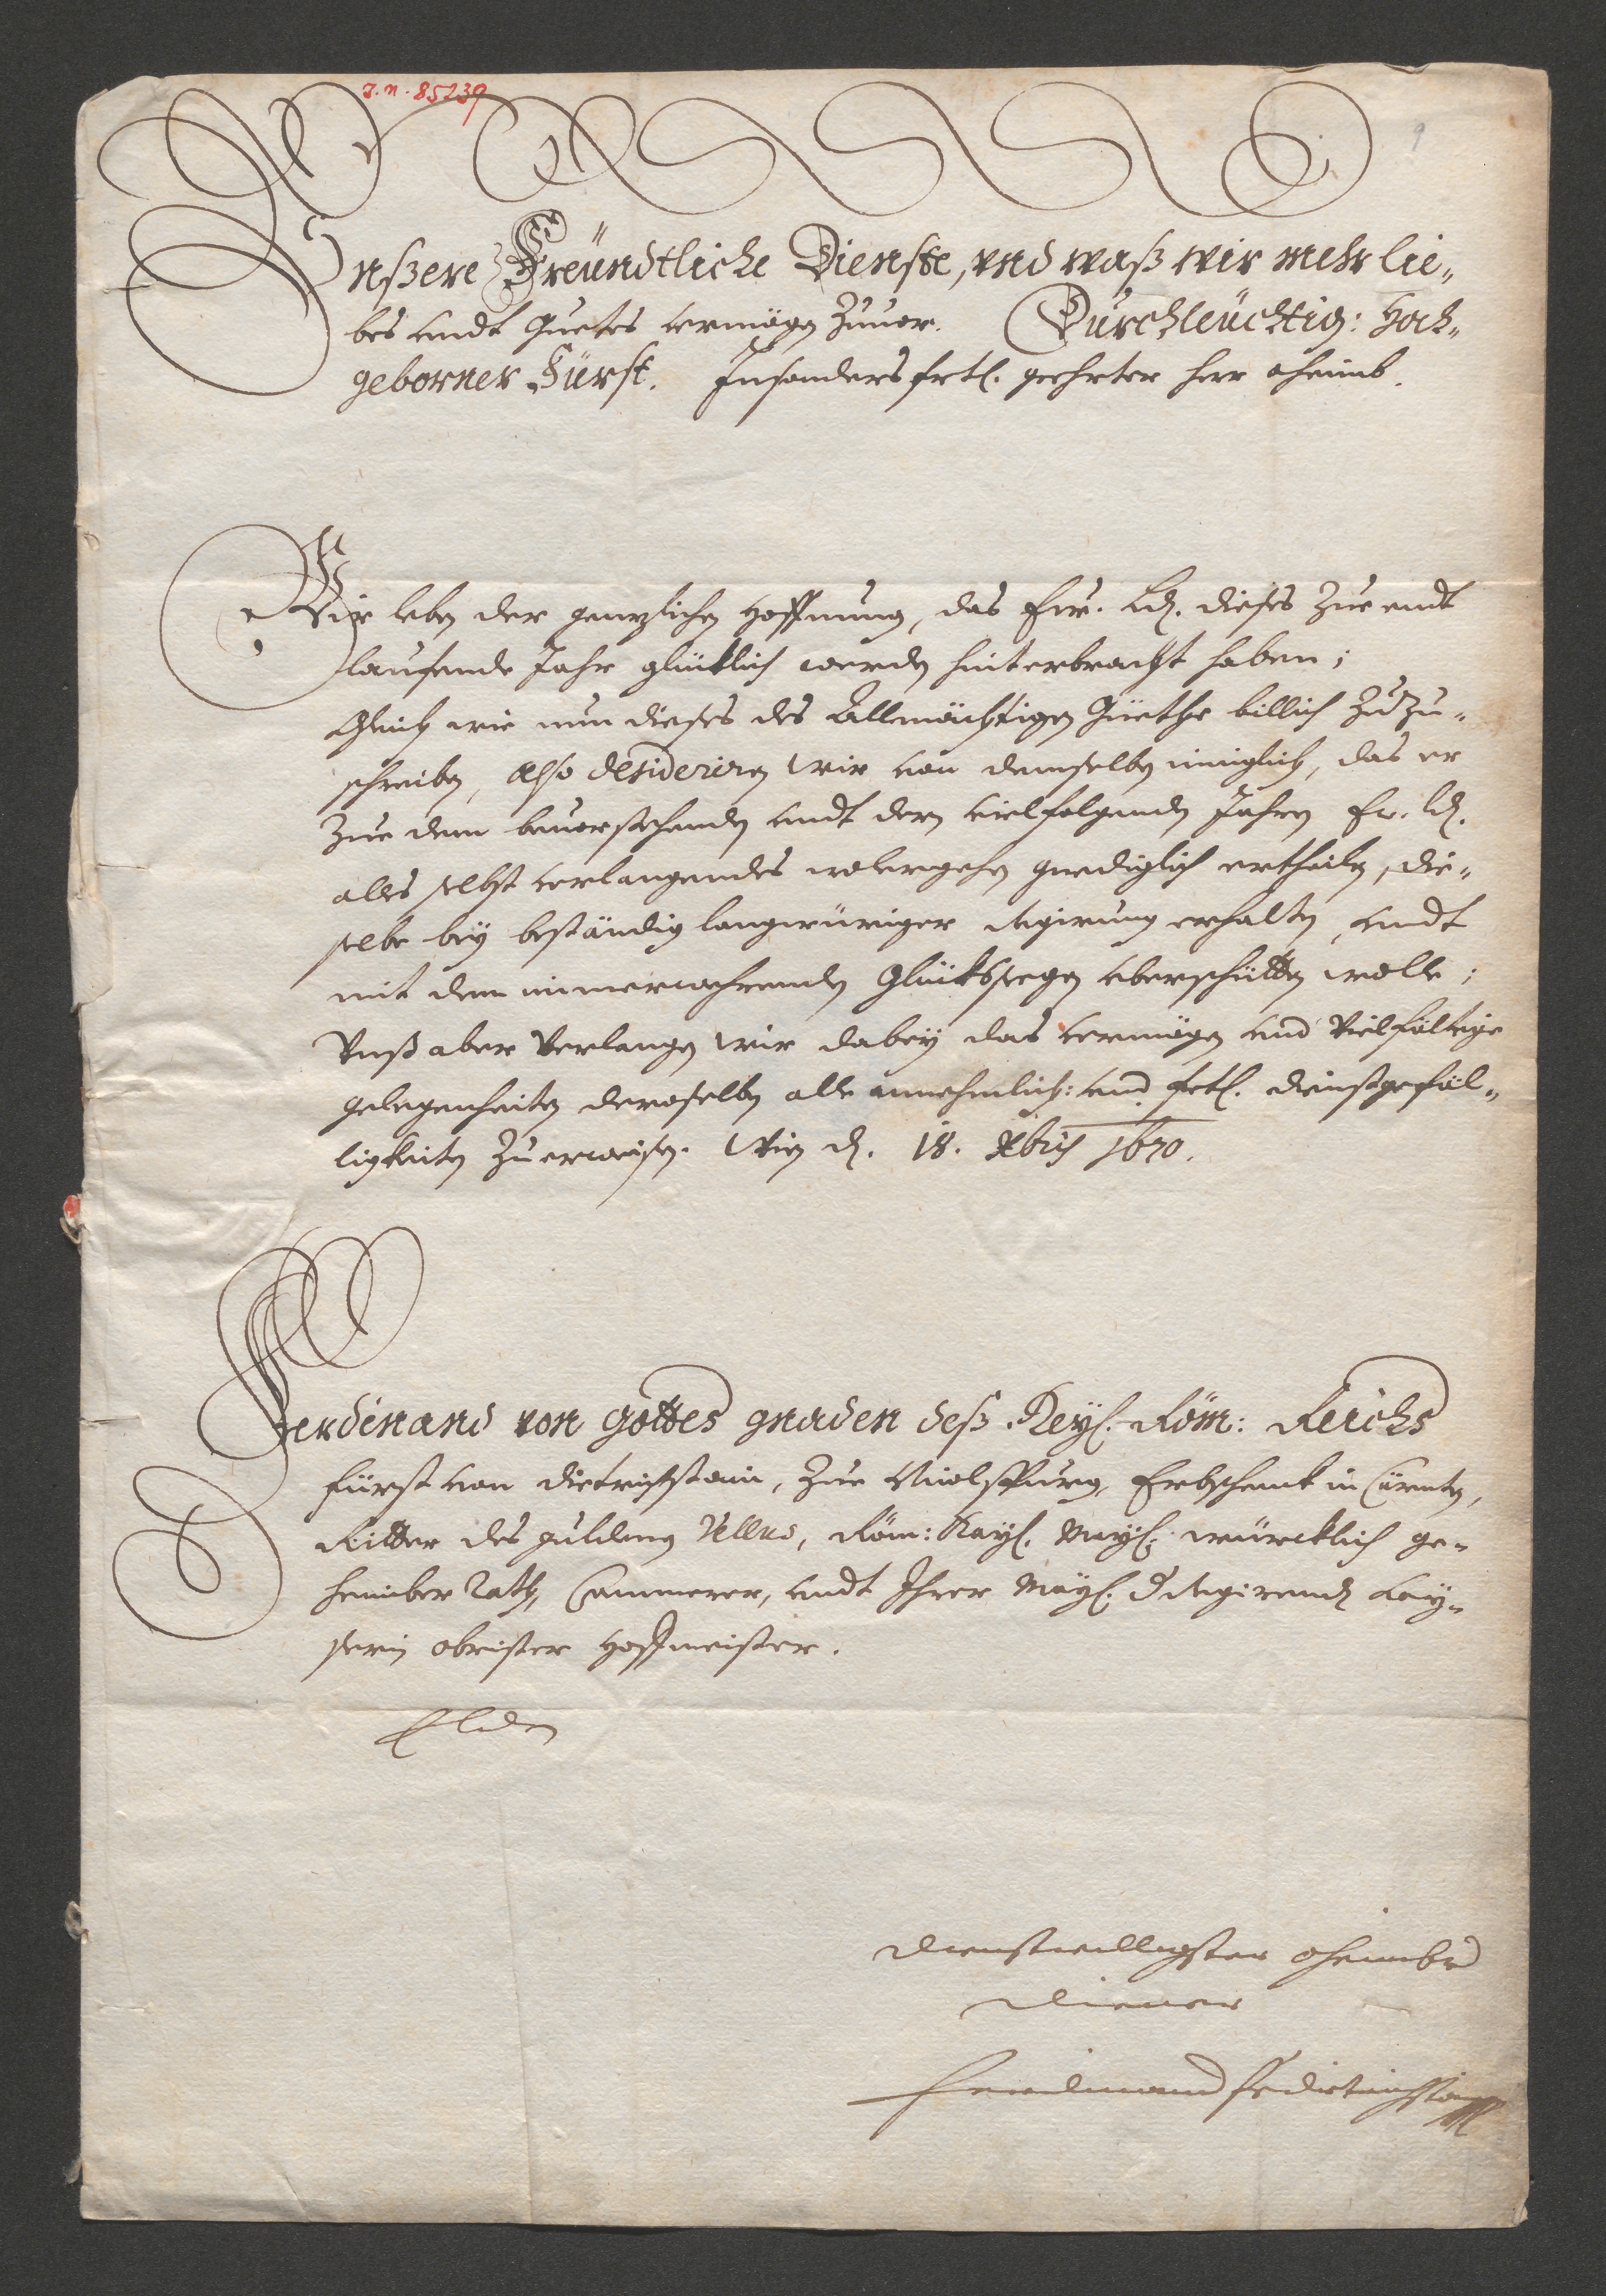 J. N. 85239
Vnßere Freündtliche Dienste, vnd waß wir mehr lie-
bes vndt Guetes vermögen Zuuor. Durchleüchtig: Hoch-
geborner Fürst. Insonders frtl. geehrter herr oheimb.
Wir leben der gentzlichen Hoffnung, das Ew. Ld. dieses Zue endt
lauffende Jahr glücklich werden hinterbracht haben;
Gleich wie nun dieses des Allmächtigen Güethe billich zuzu-
schreiben, Also desideriren Wir von demselben inniglich, das er
Zue dem beuorstehenden vndt dern viel folgenden Jahren Ew. Ld.
alles selbst verlangendes wolergehen gnediglich ertheilen, die-
selbe bey beständig langwüriger Regirung erhalten, vndt
mit dem immerwehrenden Glückhsseegen vberschütten wolle;
Vnß aber Verlangen Wir dabey das vermögen vnd Vielfältige
gelegenheiten deroselben alle annehmlich: vnd frtl. dienstgefäl-
ligkeiten Zuerweisen. Wien d. 18. Xbris 1670.
Ferdinand von Gottes gnaden deß Heyl. Röm: Reichs
fürst von Dietrichstain, Zue Nicolspurg, Erbschenk in Cärnten,
Ritter des guldenen Vellus, Röm: Kayl. Mayl. würcklich ge-
heimber Rath, Cammerer, vndt Ihrer Mayl. d Regirenden Kay-
serin obrister Hoffmeister.
E Lden
dienstwilligster oheimb vnd
diener
Ferdinand f v dietrichstain